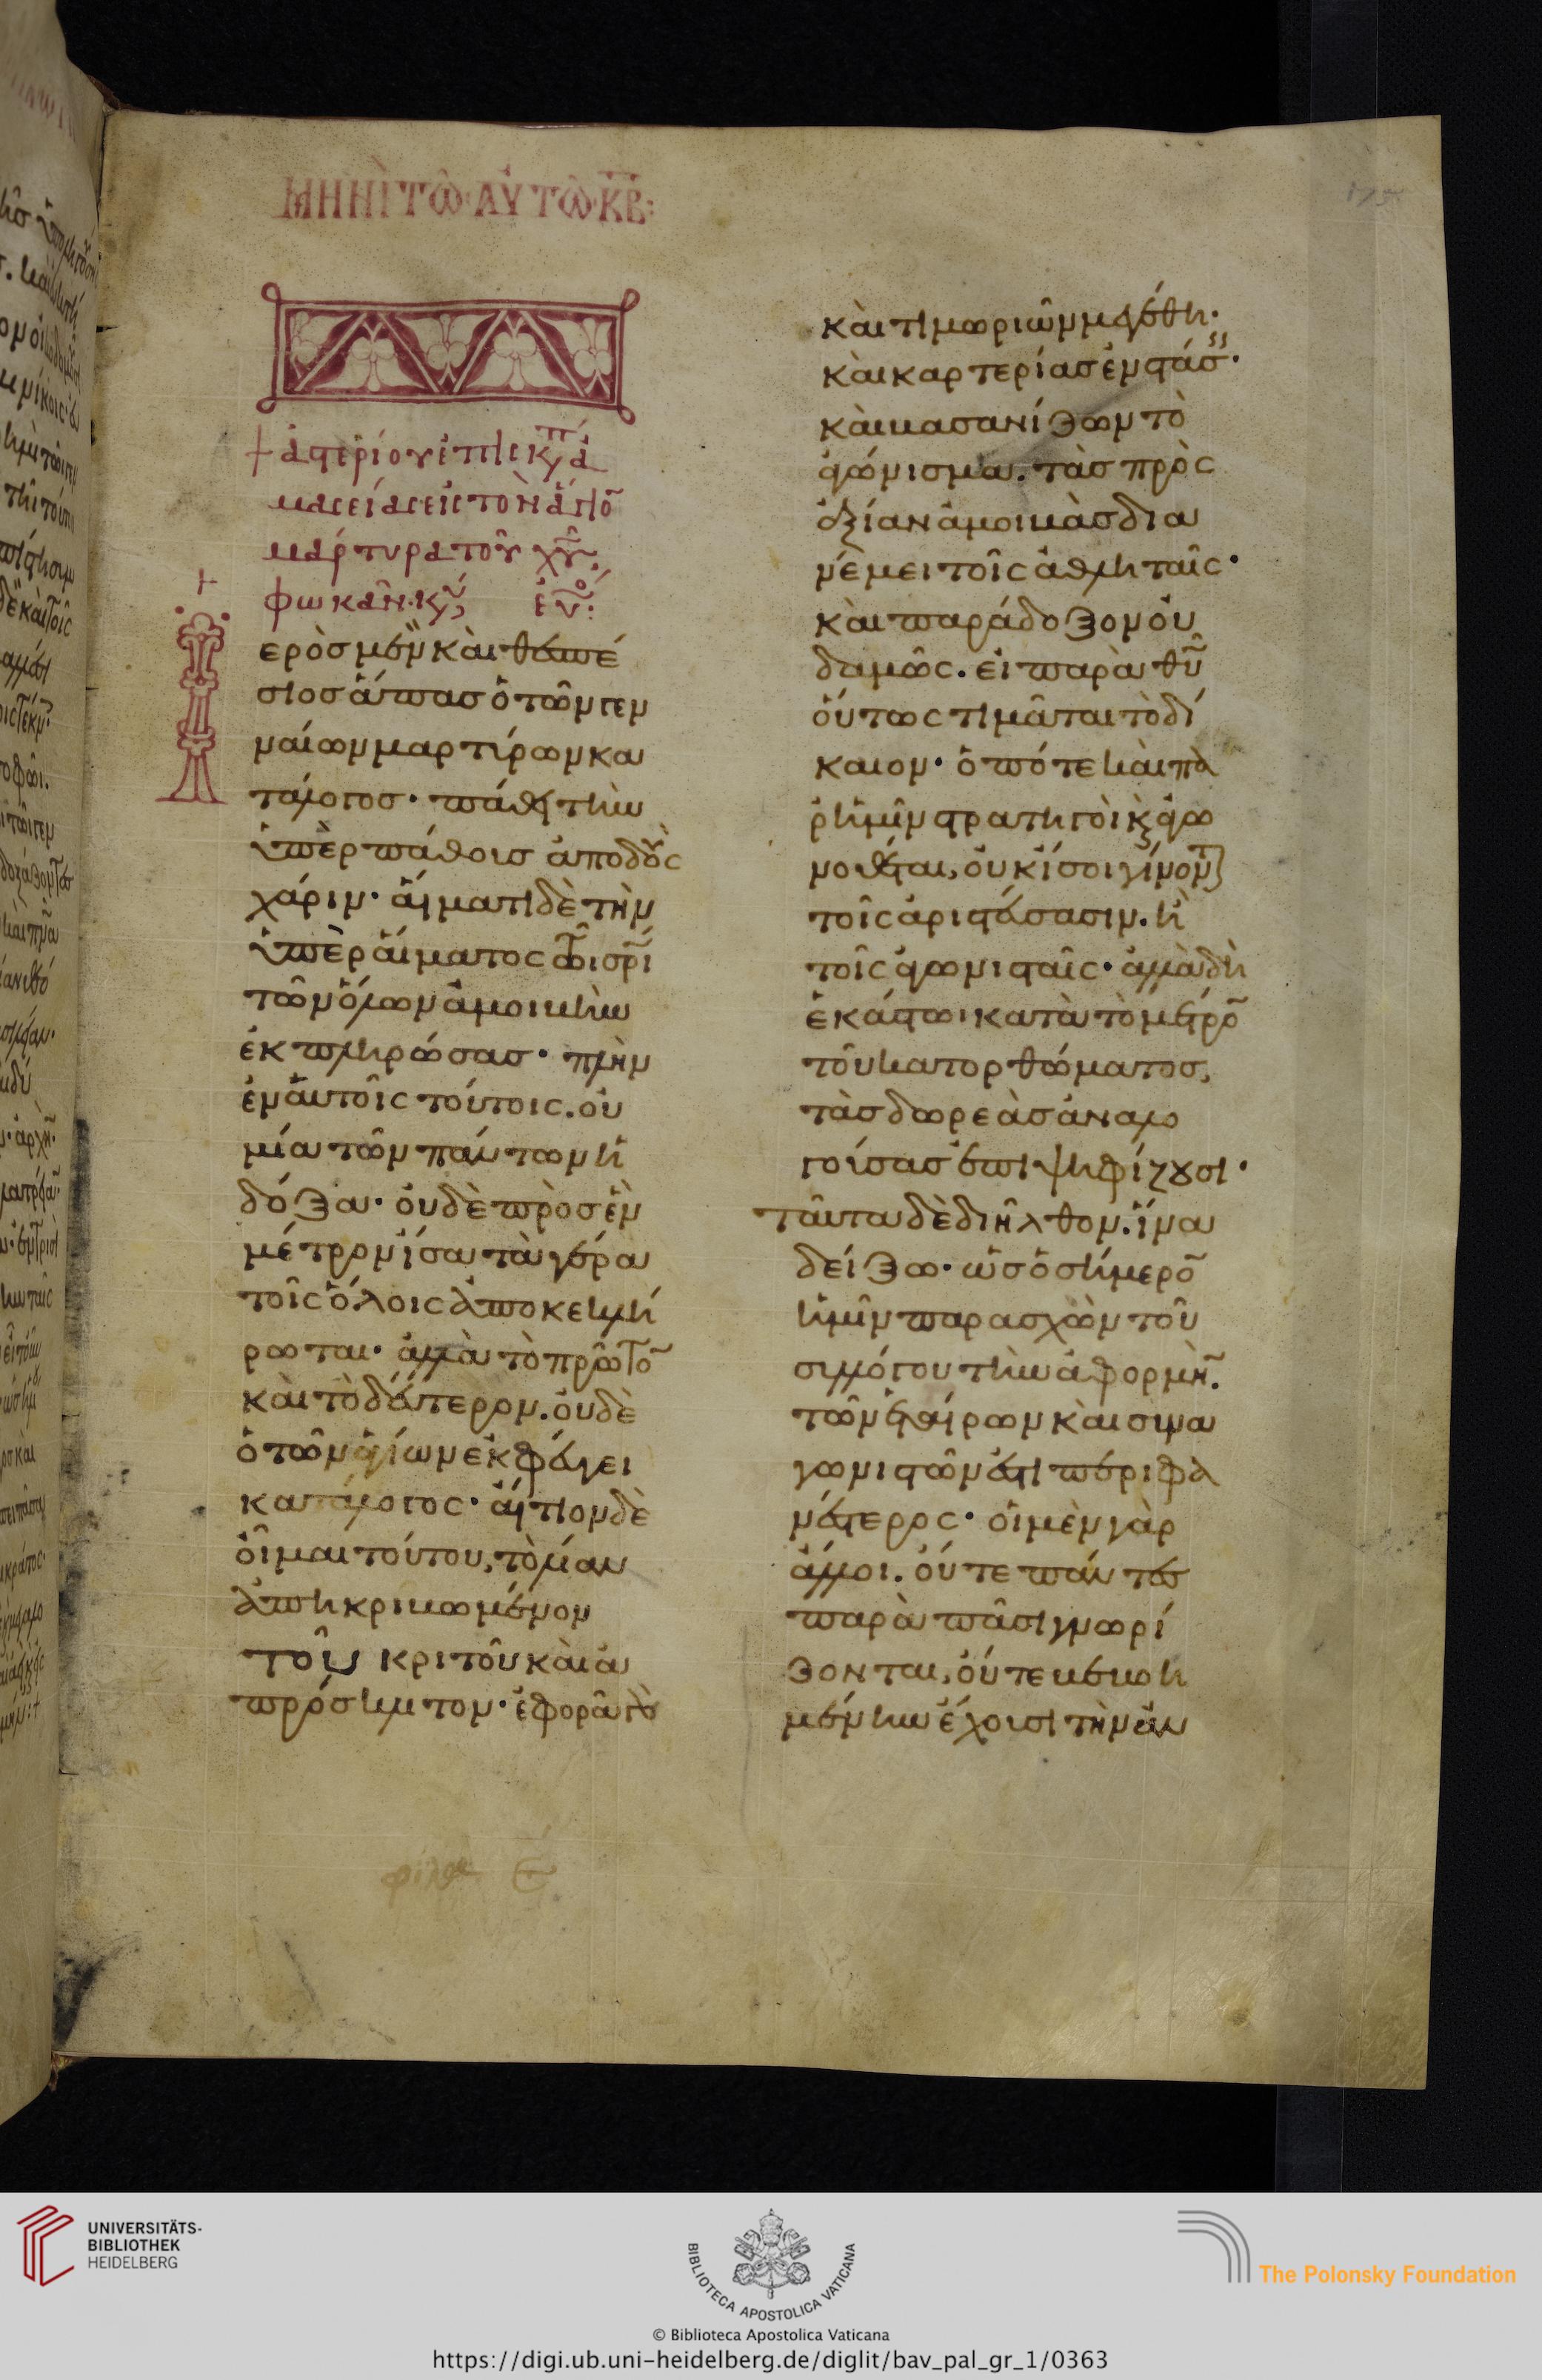 ΜΗΝΙ ΤΩ ΑΥΤΩ ΚΒ:
175
+ ἀστερίου ἐπισκόπ ἀ
μασείας εἰς τὸν ἅγιο
μάρτυρα τοῦ χυ,
φωκᾶν. κυ, ευο:
ερὸς μὲν καὶ θεσπέ
σιος ἅπας ὁ τῶν γεν
ναίων μαρτύρων κα
τάλογος· πάθει τὴν
ὑπὲρ πάθους ἀποδοὺς
χάριν· αἵματι δὲ τὴν
ὑπὲρ αἵματος τῶι σρι
τῶν ὅλων ἀμοιβὴν
ἐκπληρώσας· πλὴν
ἐν αὐτοῖς τούτοις. οὐ
μία τῶν πάντων ἡ
δόξα· οὐδὲ πρὸς ἓν
μέτρον ἴσα τὰ γέρα
τοῖς ὅλοις ἀποκεκλή
ρωται· ἀλλὰ τὸ πρῶτο
καὶ τὸ δεύτερον. οὐδὲ
ὁ τῶν ἁγίων ἐκφεύγει
κατάλογος· αἴτιον δὲ
οἶμαι τούτου, τὸ λίαν
ἀπηκριβωμένον
τοῦ κριτοῦ καὶ ἀ
πρόσληπτον· ἐφορᾷ γὰρ
καὶ τιμωριῶν μεγέθη·
καὶ καρτερίας ἐνστάσ·
καὶ βασανίζων τὸ
ἀγώνισμα. τὰς πρὸς
ἀξίαν ἀμοιβὰς δια
νέμει τοῖς ἀθληταῖς·
καὶ παράδοξον οὐ
δαμῶς. εἰ παρὰ θυ
οὕτως τιμᾶται τὸ δί
καιον· ὁπότε καὶ πα
ρ ἡμῖν στρατηγοὶ κ ἀγω
νοθέται, οὐκ ἴσοι γίνονται
τοῖς ἀριστεύσασιν. ἢ
τοῖς ἀγωνισταῖς· ἀλλὰ δὴ
ἑκάστωι κατὰ τὸ μέτρο
τοῦ κατορθώματος,
τὰς δωρεὰς ἀναλο
γούσας ἐπιψηφίζουσι·
ταῦτα δὲ διῆλθον. ἵνα
δείξω· ὡς ὁ σήμερο
ἡμῖν παρασχὼν τοῦ
συλλόγου τὴν ἀφορμή.
τῶν ἑταίρων καὶ συνα
γωνιστῶν ἐστὶ περιφα
νέστερος· οἱ μὲν γὰρ
ἄλλοι. οὔτε πάντες
παρὰ πᾶσι γνωρί
ζονται, οὔτε βεβαιω
μένην ἔχουσι τὴν ἀν
UNIVERSITÄTS-
BIBLIOTHEK
HEIDELBERG
BIBLIOTECA APOSTOLICA VATICANA
The Polonsky Foundation
© Biblioteca Apostolica Vaticana
https://digi.ub.uni-heidelberg.de/diglit/bav_pal_gr_1/0363